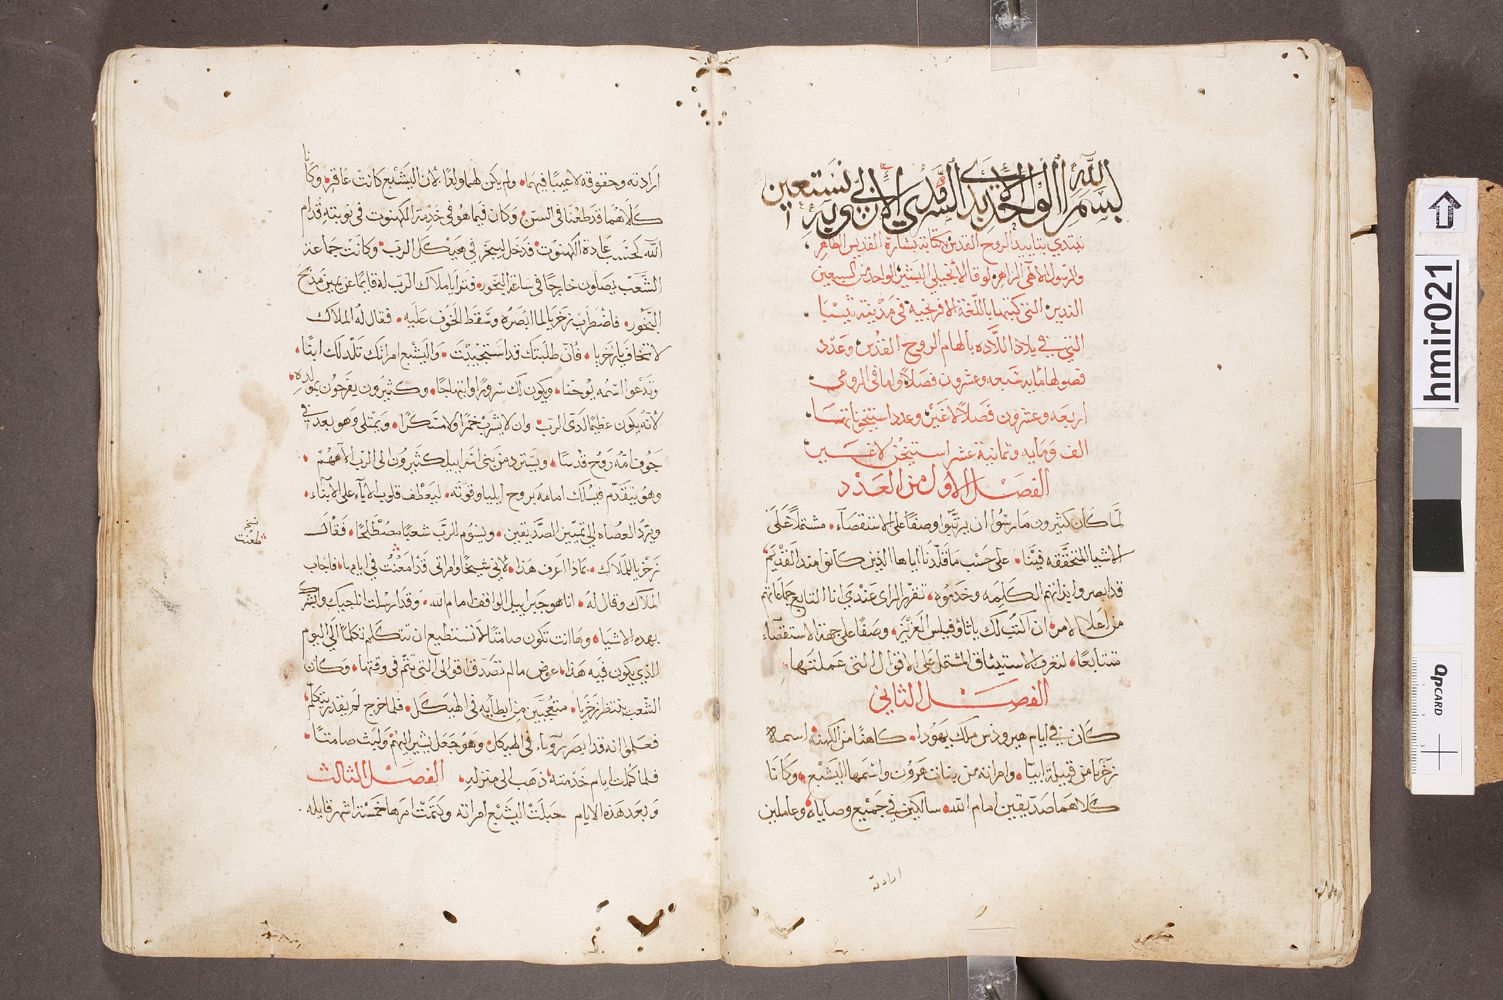 بسم الله الواحد الابدي السرمدي الازلي وبه نستعين
نبتدي بتاييد الروح القدس بكتابة بشارة القديس الطاهر
والرسول الالهي الزاهر لوقا الانجيلي البشير الواحد من السبعين
الذين التي كتبها باللغة الافرنجية في مدينة
التي في بلاد اللاده بالهام الروح القدس وعدد
فصولها مايه سبعه وعشرون فصلاً واما في الرومي
اربعه وعشرون فصلاً لا غير وعدد استيخوناتها
الف ومايه وثمانية عشر استيخن لا غير
الفصل الاول من العدد
لما كان كثيرون ما رسوا ان يرتبوا وصفًا على الاستقصاء مشتملاً على
الاشيا المتحققه فينا على حسب ما قلدنا اياها الذين كانوا منذ القديم
قد ابصروا بذاتهم الكلمه وخدموه تقرر الراى عندي انا التابع جماعاتهم
من اعلا الامر ان اكتب لك يا ثاوفيلس العزيز وصفًا على جهة الاستقصاء
متتابعًا لتعرف الاستيثاق المشتمل على الاقوال التى عملتها
الفصل الثاني
كان في ايام هيرودس ملك يهودا كاهنًا من الكهنه اسمه
زخريا من قبيلة ابيا وامراته من بنات هرون واسمها اليشبع وكانا
كلاهما صديقين امام الله سالكين في جميع وصاياه وعاملين
ارادته
ارادته وحقوقه لا عيبًا فيهما ولم يكن لهما ولدًا لان اليشبع كانت عاقر وكانا
كلاهما قد طعنا في السن وكان فيما هو في خدمة الكهنوت في نوبته قدام
الله كحسب عادة الكهنوت فدخل ليبخر في هيكل الرب وكانت جماعة
الشعب يصلون خارجًا في ساعة البخور فتراءا ملاك الرب له قايمًا عن يمين مذبح
البخور فاضطرب زخريا لما ابصره وسقط الخوف عليه فقال له الملاك
لا تخاف يا زخريا فان طلبتك قد استجيبت واليشبع امراتك تلد لك ابنًا
وتدعوا اسمه يوحنا ويكون لك سرورًا وابتهاجًا وكثيرون يفرحون بمولده
لانه يكون عظيمًا لدى الرب وان لا يشرب خمرًا ولا مسكرًا ويمتلى وهو بعد في
جوف امه روح قدسًا ويسترد من بنى اسراييل كثيرون الى الرب الاههم
وهو يتقدم فيسلك امامه بروح ايليا وقوته ليعطف قلوب الاباء على الابناء
ويرد العصاه الى تمييز الصديقين ويسوم للرب شعبًا مصطلحًا فقال
زخريا للملاك بماذا اعرف هذا لانى شيخًا وامراتى قد امعنت في ايامها فاجاب
الملاك وقال له انا هو جبراييل الواقف امام الله وقد ارسلت اناجيك وابشرك
بهذه الاشيا وها انت تكون صامتًا لا تستطيع ان تتكلم تكلمًا الى اليوم
الذي يكون فيه هذا عوض ما لم تصدق اقوالى التى تتم في وقتها وكان
الشعب ينتظر زخريا متعجبين من ابطايه في الهيكل فلما خرج لم يقدر يتكلم
فعلموا انه قد ابصر رؤياء في الهيكل وهو جعل يشير اليهم ولبث صامتًا
فلما كملت ايام خدمته ذهب الى منزله الفصل الثالث
وبعد هذه الايام حبلت اليشبع امراته وكتمت امرها خمسة اشهر قايله
طعنت
hmir021
QPCARD